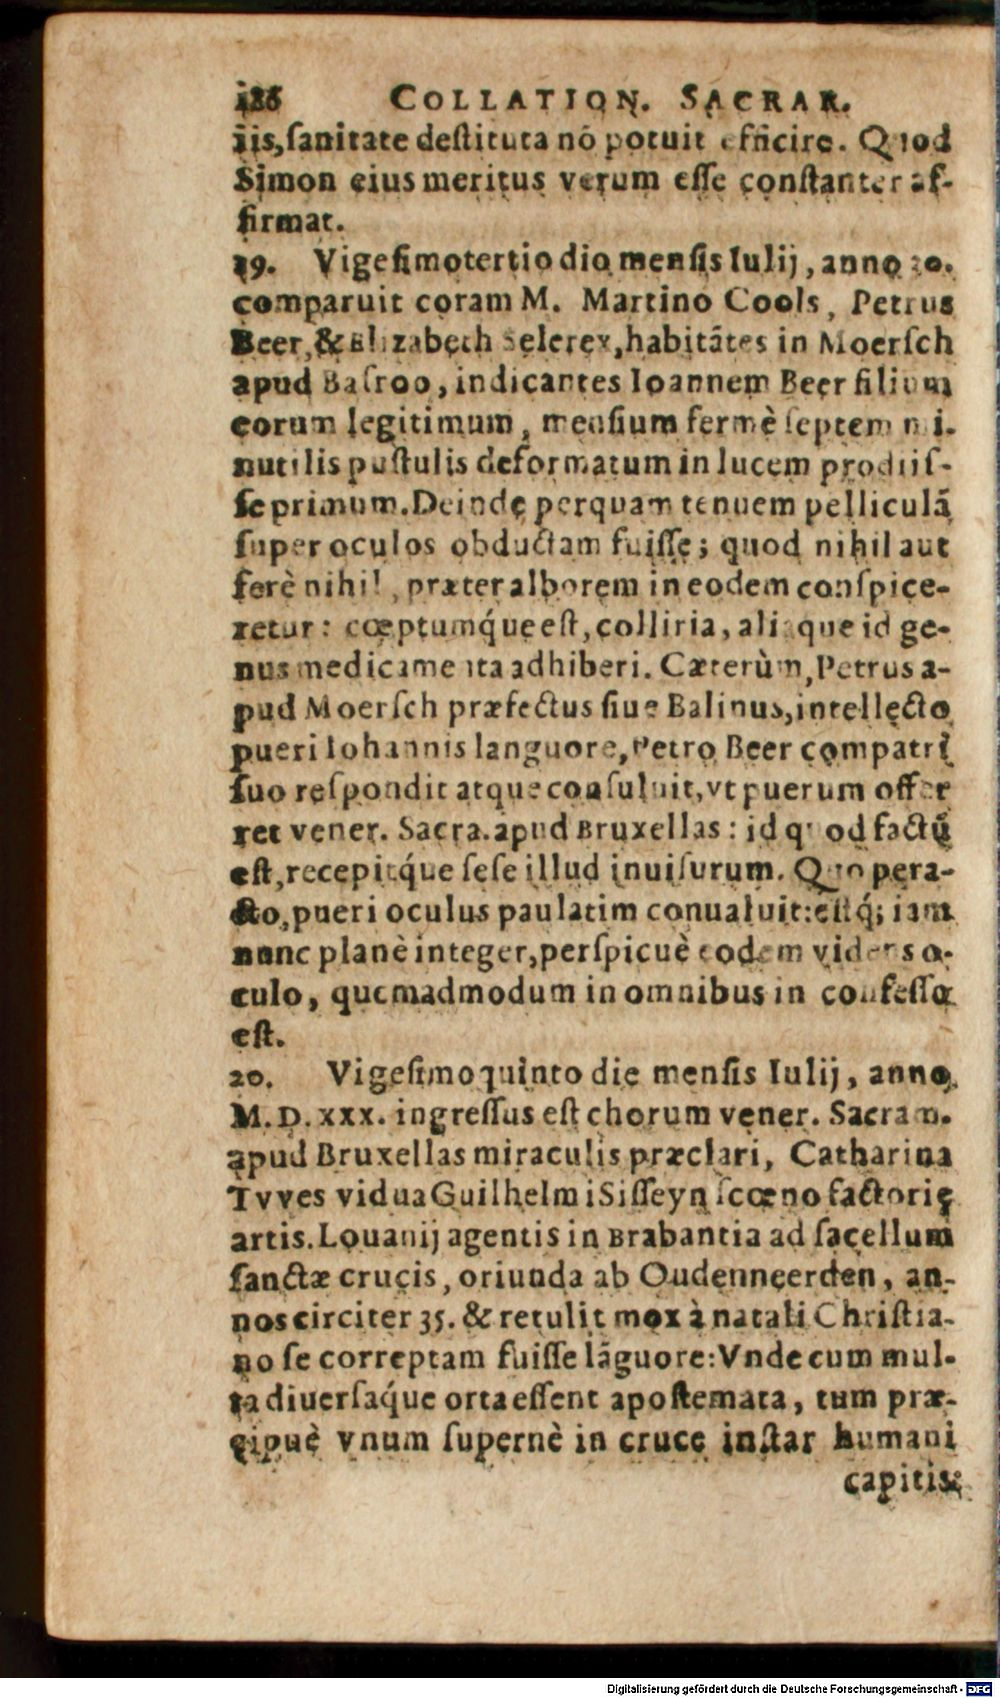 186 COLLATION. SACRAR.
iis, ſanitate deſtituta nō potuit efficire. Quod
Simon eius meritus verum eſſe conſtanter aſ-
firmat.
19. Vigeſimotertio dio menſis Iulij, anno 30.
comparuit coram M. Martino Cools, Petrus
Beer, & Elizabeth Selerex, habitātes in Moerſch
apud Baſroo, indicantes Ioannem Beer filium
eorum legitimum, menſium fermè ſeptem mi-
nutilis puſtulis deformatum in lucem prodiiſ-
ſe primum. Deinde perquam tenuem pelliculā
ſuper oculos obductam fuiſſe; quod nihil aut
ferè nihil, præter alborem in eodem conſpice-
retur: cœptumq́ue eſt, colliria, aliaque id ge-
nus medicamenta adhiberi. Cæterùm, Petrus a-
pud Moerſch præfectus ſiue Balinus, intellecto
pueri Iohannis languore, Petro Beer compatri
ſuo reſpondit atque conſuluit, vt puerum offer
ret vener. Sacra. apud Bruxellas: id quod factū
eſt, recepitq́ue ſeſe illud inuiſurum. Quo pera-
cto, pueri oculus paulatim conualuit: eſtq́; iam
nunc planè integer, perſpicuè eodem videns o-
culo, quemadmodum in omnibus in confeſſo
eſt.
20. Vigeſimoquinto die menſis Iulij, anno
M.D.XXX. ingreſſus eſt chorum vener. Sacram.
apud Bruxellas miraculis præclari, Catharina
Tvves vidua Guilhelmi Siſſeyn ſcœno factorię
artis. Louanij agentis in Brabantia ad ſacellum
ſanctæ crucis, oriunda ab Oudenneerden, an-
nos circiter 35. & retulit mox à natali Chriſtia-
no ſe correptam fuiſſe lāguore: Vnde cum mul-
ta diuerſaq́ue orta eſſent apoſtemata, tum præ-
cipuè vnum ſupernè in cruce inſtar humani
capitis:
Digitalisierung gefördert durch die Deutsche Forschungsgemeinschaft - DFG